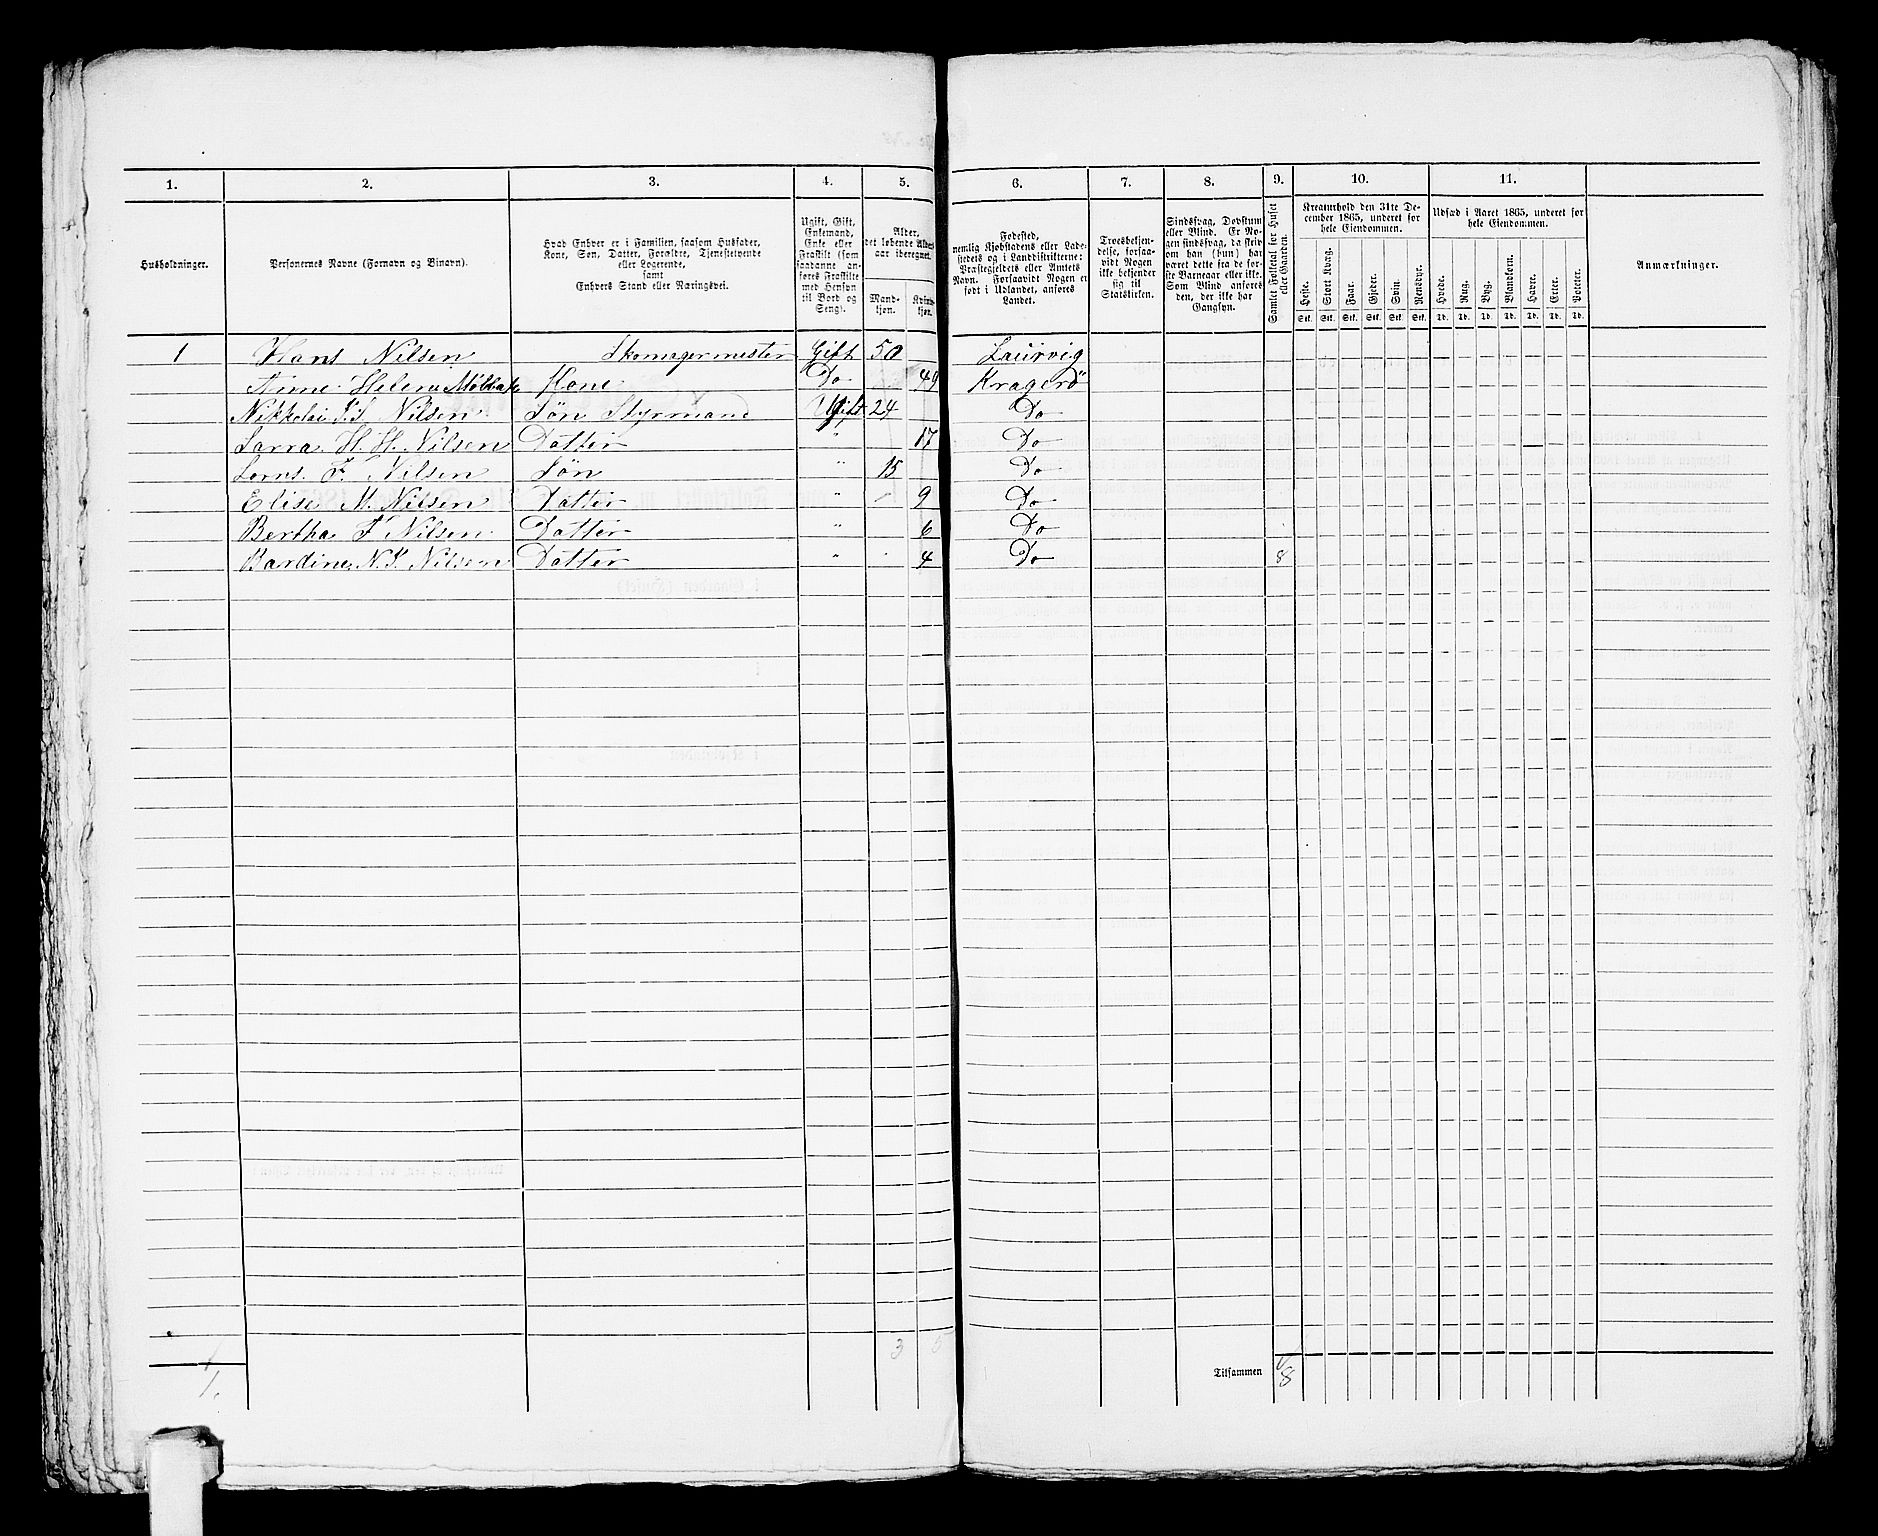 1. 2. 3. 4. 5. 6. 7. 8. 9. 10. 11.
Husholdninger.
Personernes Navne (Fornavn og Binavn).
Hvad Enhver er i Familien, saasom Husfader,
Kone, Søn, Datter, Forældre, Tjenestetyende
eller Logerende,
samt
Enhvers Stand eller Næringsvei.
Ugift, Gift,
Enkemand,
Enke eller
Fraskilt (som
saadanne an-
føres Fraskilte
med Hensyn
til Bord og
Seng).
Alder,
det løbende Alders-
aar iberegnet.
Mand-
kjøn.
Kvinde-
kjøn.
Fødested,
nemlig Kjøbstadens eller Lade-
stedets og i Landdistrikterne:
Præstegjeldets eller Amtets
Navn. Forsaavidt Nogen er
født i Udlandet, anføres
Landet.
Troesbekjen-
delse, forsaa-
vidt Nogen
ikke bekjender
sig til
Statskirken.
Sindssvag, Døvstum
eller Blind. Er No-
gen sindssvag, da skriv
om han (hun) har
været dette fra de før-
ste Barneaar eller ikke.
Som Blind anføres
den, der ikke har
Gangsyn.
Samlet Folketal for Huset
eller Gaarden.
Kreaturhold den 31te De-
cember 1865, underet for
hele Eiendommen.
Heste. Stort Kvæg. Faar. Gjeder. Svin. Rensdyr.
Stk. Stk. Stk. Stk. Stk. Stk.
Udsæd i Aaret 1865, underet for
hele Eiendommen.
Hvede. Rug. Byg. Blandkorn. Havre. Erter. Poteter.
Td. Td. Td. Td. Td. Td. Td.
Anmærkninger.
1 Hans Nilsen Skomagermester Gift 50 Laurvig
Anne Helene Kone Do 49 Kragerö
Nikkolai Nilsen Sön Styrmand Ugift 24 Do
Sarra H. H. Nilsen Datter " 17 Do
F. Nilsen Sön " 15 Do
Elise M. Nilsen Datter " 9 Do
Bertha F Nilsen Datter " 6 Do
Bardine N. Nilsen Datter " 4 Do 8
3 5
1.
Tilsammen 8